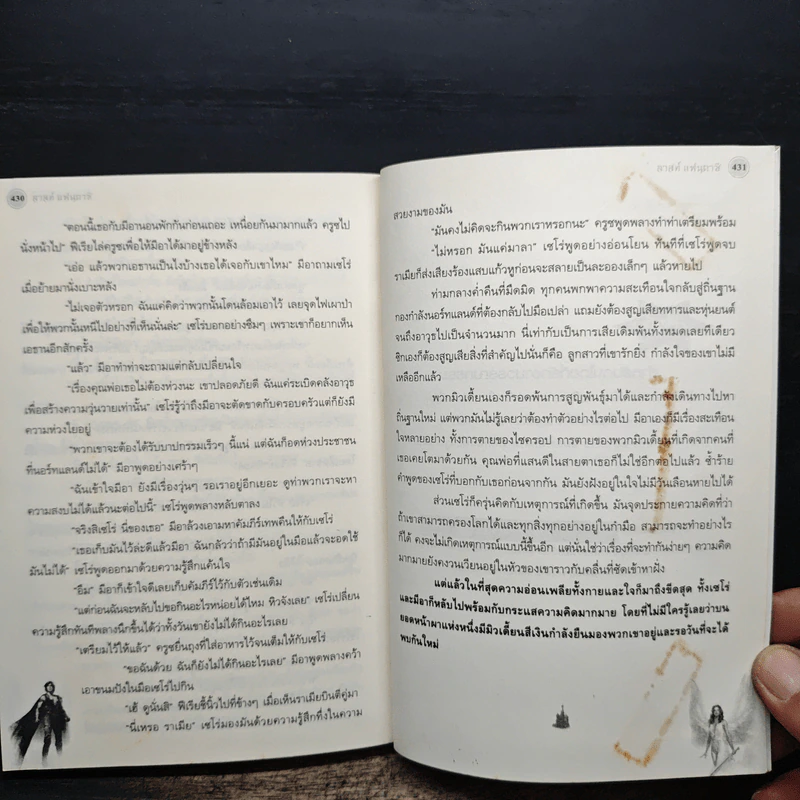 430
"ตอนนี้เธอกับมีอานอนพักกันก่อนเถอะ เหนื่อยกันมามากแล้ว ครูซไป
นั่งหน้าไป" ฟีเรียไล่ครูซเพื่อให้มีอาได้มาอยู่ข้างหลัง
"เอ่อ แล้วพวกเอธานเป็นไงบ้างเธอได้เจอกับเขาไหม" มีอาถามเซโร่
เมื่อย้ายมานั่งเบาะหลัง
"ไม่เจอตัวหรอก ฉันแค่คิดว่าพวกนั้นโดนล้อมเอาไว้ เลยจุดไฟเผาป่า
เพื่อให้พวกนั้นหนีไปอย่างที่เห็นนั่นล่ะ" เซโร่บอกอย่างซึมๆ เพราะเขาก็อยากเห็น
เอธานอีกสักครั้ง
"แล้ว" มีอาทำท่าจะถามแต่กลับเปลี่ยนใจ
"เรื่องคุณพ่อเธอไม่ต้องห่วงนะ เขาปลอดภัยดี ฉันแค่ระเบิดคลังอาวุธ
เพื่อสร้างความวุ่นวายเท่านั้น" เซโร่รู้ว่าถึงมีอาจะตัดขาดกับครอบครัวแต่ก็ยังมี
ความห่วงใยอยู่
"พวกเขาจะต้องได้รับบาปกรรมเร็วๆ นี้แน่ แต่ฉันก็อดห่วงประชาชน
ที่นอร์ทแลนด์ไม่ได้" มีอาพูดอย่างเศร้าๆ
"ฉันเข้าใจมีอา ยังมีเรื่องวุ่นๆ รอเราอยู่อีกเยอะ ดูท่าพวกเราจะหา
ความสงบไม่ได้แล้วนะต่อไปนี้" เซโร่พูดพลางหลับตาลง
"จริงสิเซโร่ นี่ของเธอ" มีอาล้วงเอามหาคัมภีร์เทพคืนให้กับเซโร่
"เธอเก็บมันไว้ล่ะดีแล้วมีอา ฉันกลัวว่าถ้ามีมันอยู่ในมือแล้วจะอดใช้
มันไม่ได้" เซโร่พูดออกมาด้วยความรู้สึกแค้นใจ
"อืม" มีอาก็เข้าใจดีเลยเก็บคัมภีร์ไว้กับตัวเช่นเดิม
"แต่ก่อนฉันจะหลับไปขอกินอะไรหน่อยได้ไหม หิวจังเลย" เซโร่เปลี่ยน
ความรู้สึกทันทีพลางนึกขึ้นได้ว่าทั้งวันเขายังไม่ได้กินอะไรเลย
"เตรียมไว้ให้แล้ว" ครูซยื่นถุงที่ใส่อาหารไว้จนเต็มให้กับเซโร่
"ขอฉันด้วย ฉันก็ยังไม่ได้กินอะไรเลย" มีอาพูดพลางคว้า
เอาขนมปังในมือเซโร่ไปกิน
"เฮ้ ดูนั่นสิ" ฟีเรียชี้นิ้วไปที่ข้างๆ เมื่อเห็นราเมียบินตีคู่มา
"นี่เหรอ ราเมีย" เซโร่มองมันด้วยความรู้สึกทึ่งในความ
431
สวยงามของมัน
"มันคงไม่คิดจะกินพวกเราหรอกนะ" ครูซพูดพลางทำท่าเตรียมพร้อม
"ไม่หรอก มันแค่มาลา" เซโร่พูดอย่างอ่อนโยน ทันทีที่เซโร่พูดจบ
ราเมียก็ส่งเสียงร้องแสบแก้วหูก่อนจะสลายเป็นละอองเล็กๆ แล้วหายไป
ท่ามกลางค่ำคืนที่มืดมิด ทุกคนพกพาความสะเทือนใจกลับสู่ถิ่นฐาน
กองกำลังนอร์ทแลนด์ที่ต้องกลับไปมือเปล่า แถมยังต้องสูญเสียทหารและหุ่นยนต์
จนถึงอาวุธไปเป็นจำนวนมาก นี่เท่ากับเป็นการเสียเดิมพันทั้งหมดเลยทีเดียว
ซิกเองก็ต้องสูญเสียสิ่งที่สำคัญไปนั่นก็คือ ลูกสาวที่เขารักยิ่ง กำลังใจของเขาไม่มี
เหลืออีกแล้ว
พวกมิวเดี้ยนเองก็รอดพ้นการสูญพันธุ์มาได้และกำลังเดินทางไปหา
ถิ่นฐานใหม่ แต่พวกมันไม่รู้เลยว่าต้องทำตัวอย่างไรต่อไป มีอาเองก็มีเรื่องสะเทือน
ใจหลายอย่าง ทั้งการตายของไซครอป การตายของพวกมิวเดี้ยนที่เกิดจากคนที่
เธอเคยโตมาด้วยกัน คุณพ่อที่แสนดีในสายตาเธอก็ไม่ใช่อีกต่อไปแล้ว ซ้ำร้าย
คำพูดของเซโร่ที่บอกกับเธอก่อนจากกัน มันยังฝังอยู่ในใจไม่มีวันเลือนหายไปได้
ส่วนเซโร่ก็ครุ่นคิดกับเหตุการณ์ที่เกิดขึ้น มันจุดประกายความคิดที่ว่า
ถ้าเขาสามารถครองโลกได้และทุกสิ่งทุกอย่างอยู่ในกำมือ สามารถจะทำอย่างไร
ก็ได้ คงจะไม่เกิดเหตุการณ์แบบนี้ขึ้นอีก แต่นั่นใช่ว่าเรื่องที่จะทำกันง่ายๆ ความคิด
มากมายยังคงวนเวียนอยู่ในหัวของเขาราวกับคลื่นที่ซัดเข้าหาฝั่ง
แต่แล้วในที่สุดความอ่อนเพลียทั้งกายและใจก็มาถึงขีดสุด ทั้งเซโร่
และมีอาก็หลับไปพร้อมกับกระแสความคิดมากมาย โดยที่ไม่มีใครรู้เลยว่าบน
ยอดหน้าผาแห่งหนึ่งมีมิวเดี้ยนสีเงินกำลังยืนมองพวกเขาอยู่และรอวันที่จะได้
พบกันใหม่